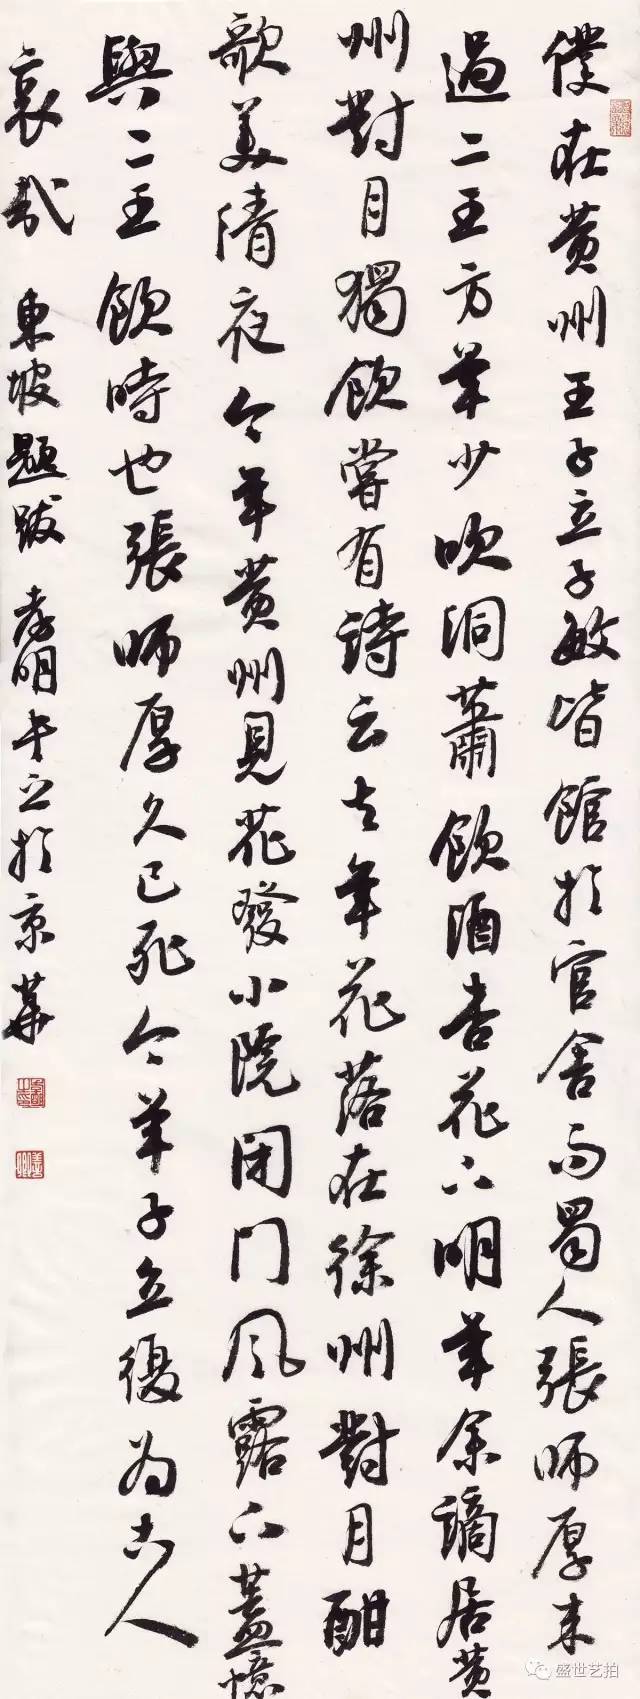 僕在黄州王子立子敏皆館於官舍而蜀人張師厚来
過二王方年少吹洞蕭飲酒杏花下明年余謫居黄
州對月獨飲嘗有詩云去年花落在徐州對月酣
歌美清夜今年黄州見花發小院閉門風露下蓋憶
與二王飲時也張師厚久已死今年子立復為古人
哀哉 東坡題跋 孝明書於京華
盛世艺拍